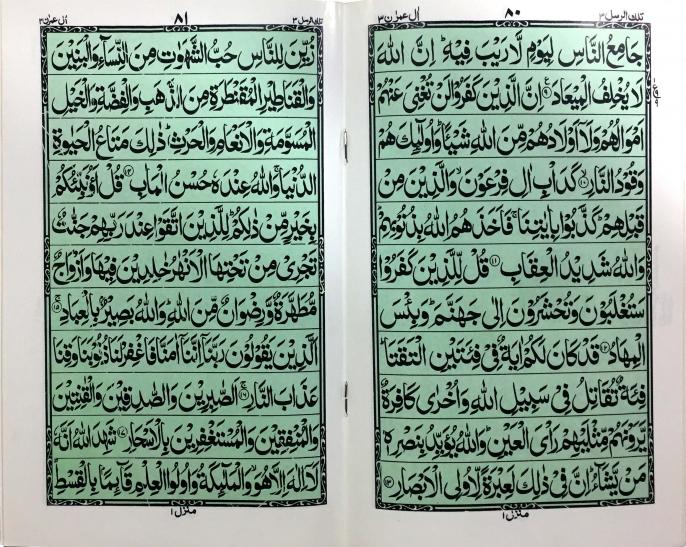 تلك الرسل ٣ ٨٠ اٰل عمرٰن ٣
جَامِعُ النَّاسِ لِيَوْمٍ لَّا رَيْبَ فِيْهِ ؕ اِنَّ اللّٰهَ
لَا يُخْلِفُ الْمِيْعَادَ ۝۹ اِنَّ الَّذِيْنَ كَفَرُوْا لَنْ تُغْنِيَ عَنْهُمْ
اَمْوَالُهُمْ وَلَاۤ اَوْلَادُهُمْ مِّنَ اللّٰهِ شَيْـًٔا ؕ وَاُولٰٓئِكَ هُمْ
وَقُوْدُ النَّارِ ۝۱۰ كَدَاْبِ اٰلِ فِرْعَوْنَ ۙ وَالَّذِيْنَ مِنْ
قَبْلِهِمْ ؕ كَذَّبُوْا بِاٰيٰتِنَا ۚ فَاَخَذَهُمُ اللّٰهُ بِذُنُوْبِهِمْ ؕ
وَاللّٰهُ شَدِيْدُ الْعِقَابِ ۝۱۱ قُلْ لِّلَّذِيْنَ كَفَرُوْا
سَتُغْلَبُوْنَ وَتُحْشَرُوْنَ اِلٰى جَهَنَّمَ ؕ وَبِئْسَ
الْمِهَادُ ۝۱۲ قَدْ كَانَ لَكُمْ اٰيَةٌ فِيْ فِئَتَيْنِ الْتَقَتَا ؕ
فِئَةٌ تُقَاتِلُ فِيْ سَبِيْلِ اللّٰهِ وَاُخْرٰى كَافِرَةٌ
يَّرَوْنَهُمْ مِّثْلَيْهِمْ رَاْيَ الْعَيْنِ ؕ وَاللّٰهُ يُؤَيِّدُ بِنَصْرِهٖ
مَنْ يَّشَآءُ ؕ اِنَّ فِيْ ذٰلِكَ لَعِبْرَةً لِّاُولِي الْاَبْصَارِ ۝۱۳
منزل ١
تلك الرسل ٣ ٨١ اٰل عمرٰن ٣
زُيِّنَ لِلنَّاسِ حُبُّ الشَّهَوٰتِ مِنَ النِّسَآءِ وَالْبَنِيْنَ
وَالْقَنَاطِيْرِ الْمُقَنْطَرَةِ مِنَ الذَّهَبِ وَالْفِضَّةِ وَالْخَيْلِ
الْمُسَوَّمَةِ وَالْاَنْعَامِ وَالْحَرْثِ ؕ ذٰلِكَ مَتَاعُ الْحَيٰوةِ
الدُّنْيَا ۚ وَاللّٰهُ عِنْدَهٗ حُسْنُ الْمَاٰبِ ۝۱۴ قُلْ اَؤُنَبِّئُكُمْ
بِخَيْرٍ مِّنْ ذٰلِكُمْ ؕ لِلَّذِيْنَ اتَّقَوْا عِنْدَ رَبِّهِمْ جَنّٰتٌ
تَجْرِيْ مِنْ تَحْتِهَا الْاَنْهٰرُ خٰلِدِيْنَ فِيْهَا وَاَزْوَاجٌ
مُّطَهَّرَةٌ وَّرِضْوَانٌ مِّنَ اللّٰهِ ؕ وَاللّٰهُ بَصِيْرٌۢ بِالْعِبَادِ ۝۱۵
اَلَّذِيْنَ يَقُوْلُوْنَ رَبَّنَاۤ اِنَّنَاۤ اٰمَنَّا فَاغْفِرْ لَنَا ذُنُوْبَنَا وَقِنَا
عَذَابَ النَّارِ ۝۱۶ اَلصّٰبِرِيْنَ وَالصّٰدِقِيْنَ وَالْقٰنِتِيْنَ
وَالْمُنْفِقِيْنَ وَالْمُسْتَغْفِرِيْنَ بِالْاَسْحَارِ ۝۱۷ شَهِدَ اللّٰهُ اَنَّهٗ
لَاۤ اِلٰهَ اِلَّا هُوَ ۙ وَالْمَلٰٓئِكَةُ وَاُولُوا الْعِلْمِ قَآئِمًۢا بِالْقِسْطِ ؕ
منزل ١